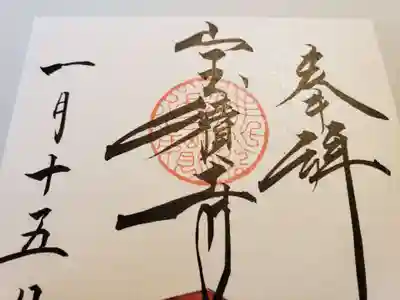 奉拝
宝積寺
一月十五日